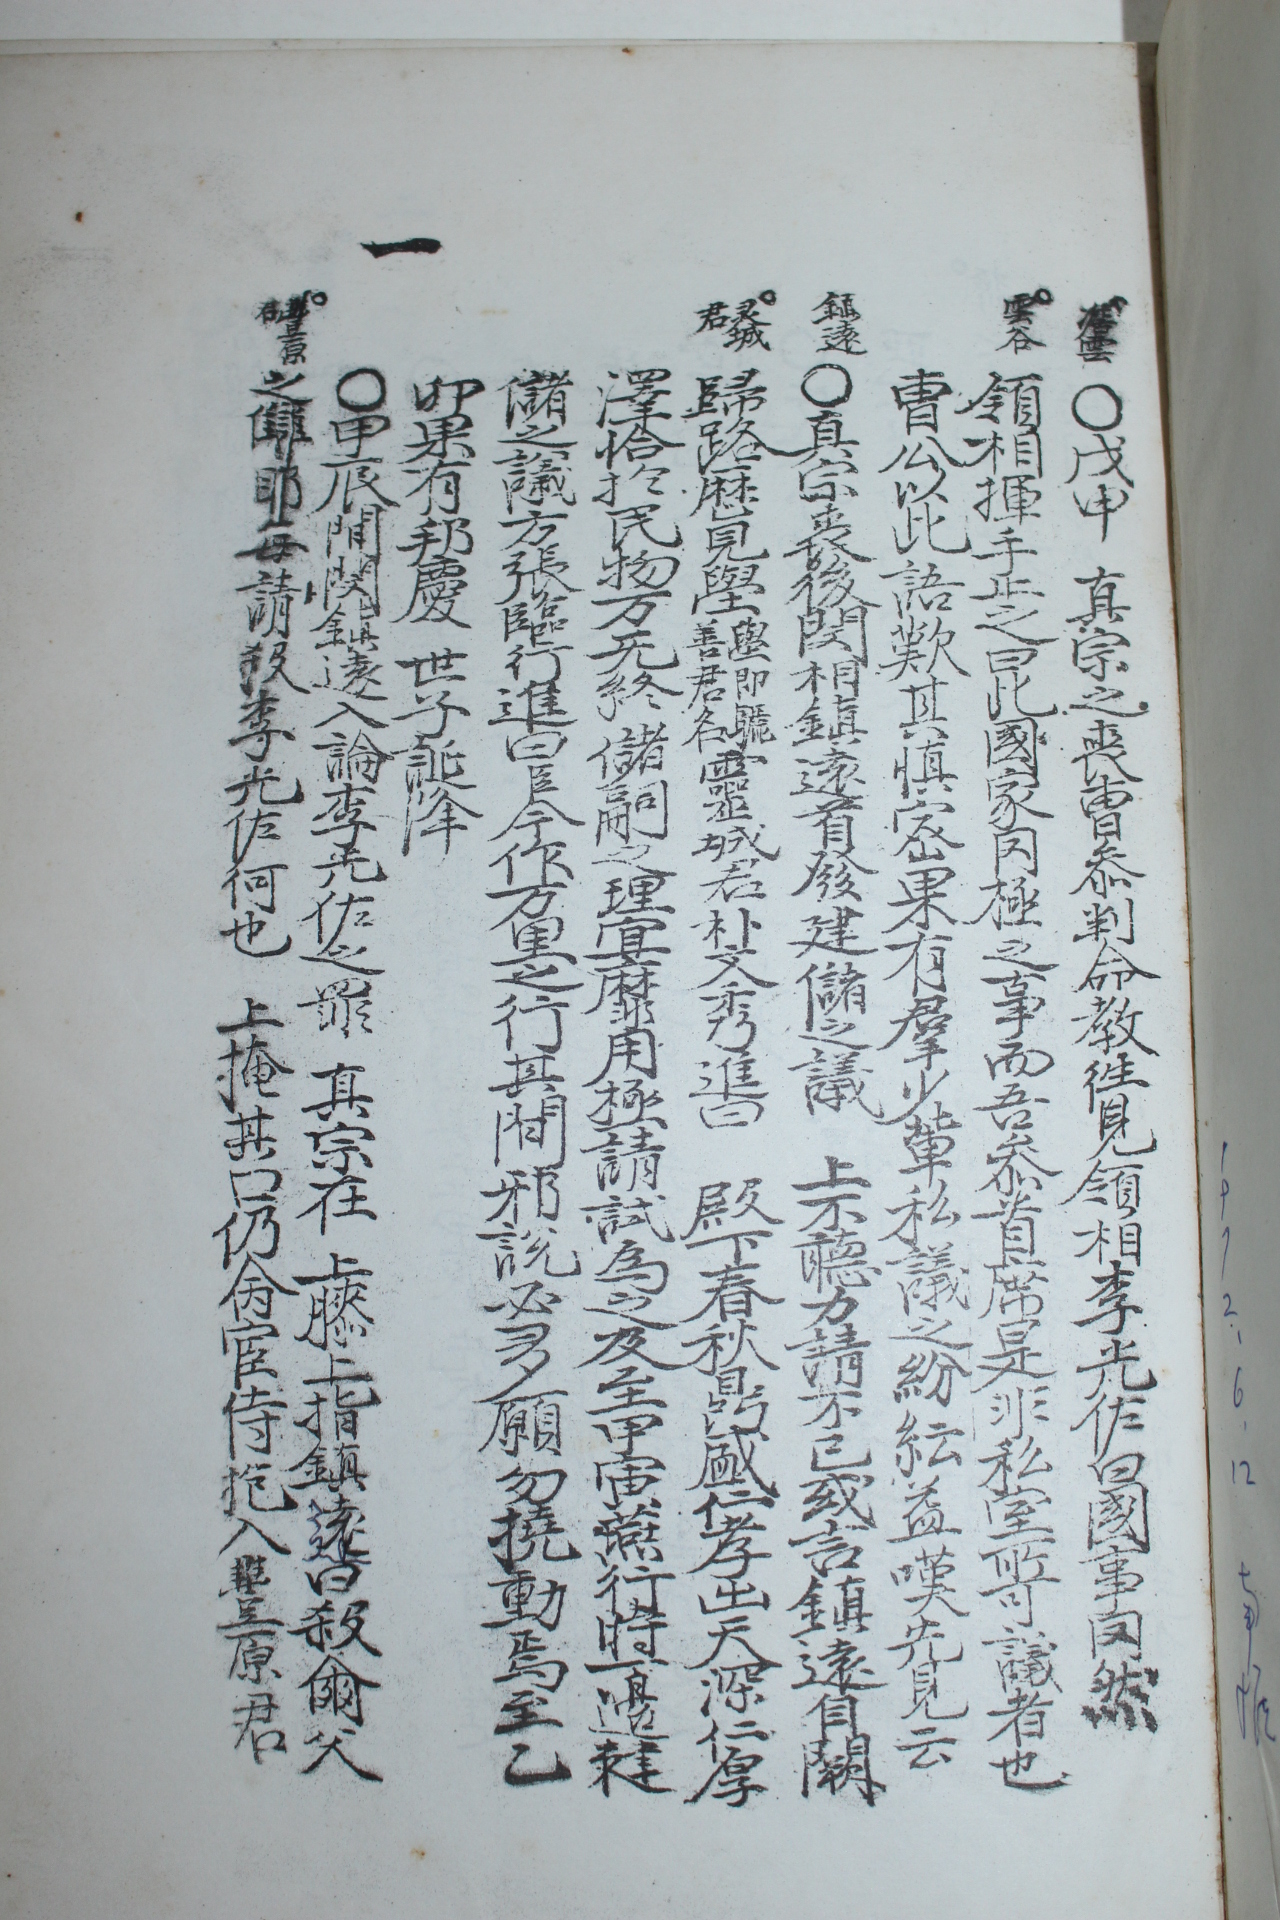 一
雲谷
鎮遠
灵城君
豊原君
〇戊申 真宗之喪曺參判命教徃見領相李光佐曰國事罔然
領相揮手止之曰此國家罔極之事而吾忝首席是非私室所可議者也
曺公以此語歎其慎密果有群少輩私議之紛紜益嘆先見云
〇真宗喪後閔相鎮遠首發建儲之議 上不聽力請不已或言鎮遠自闕
歸路歷見壆壆即驪善君名靈城君朴文秀進曰 殿下春秋鼎盛仁孝出天深仁厚
澤恰於民物万无終儲嗣之理宜靡用極請試為之及至甲寅燕行時一邊建
儲之議方張臨行進曰臣今作万里之行其間邪說必多願勿撓動焉至乙
卯果有邦慶 世子誕降
〇甲辰間閔鎮遠入論李光佐之罪 真宗在 上膝上指鎮遠曰殺爾父
之讐耶每請殺李光佐何也 上掩其口仍命宦侍抱入豊原君
1972.6.12